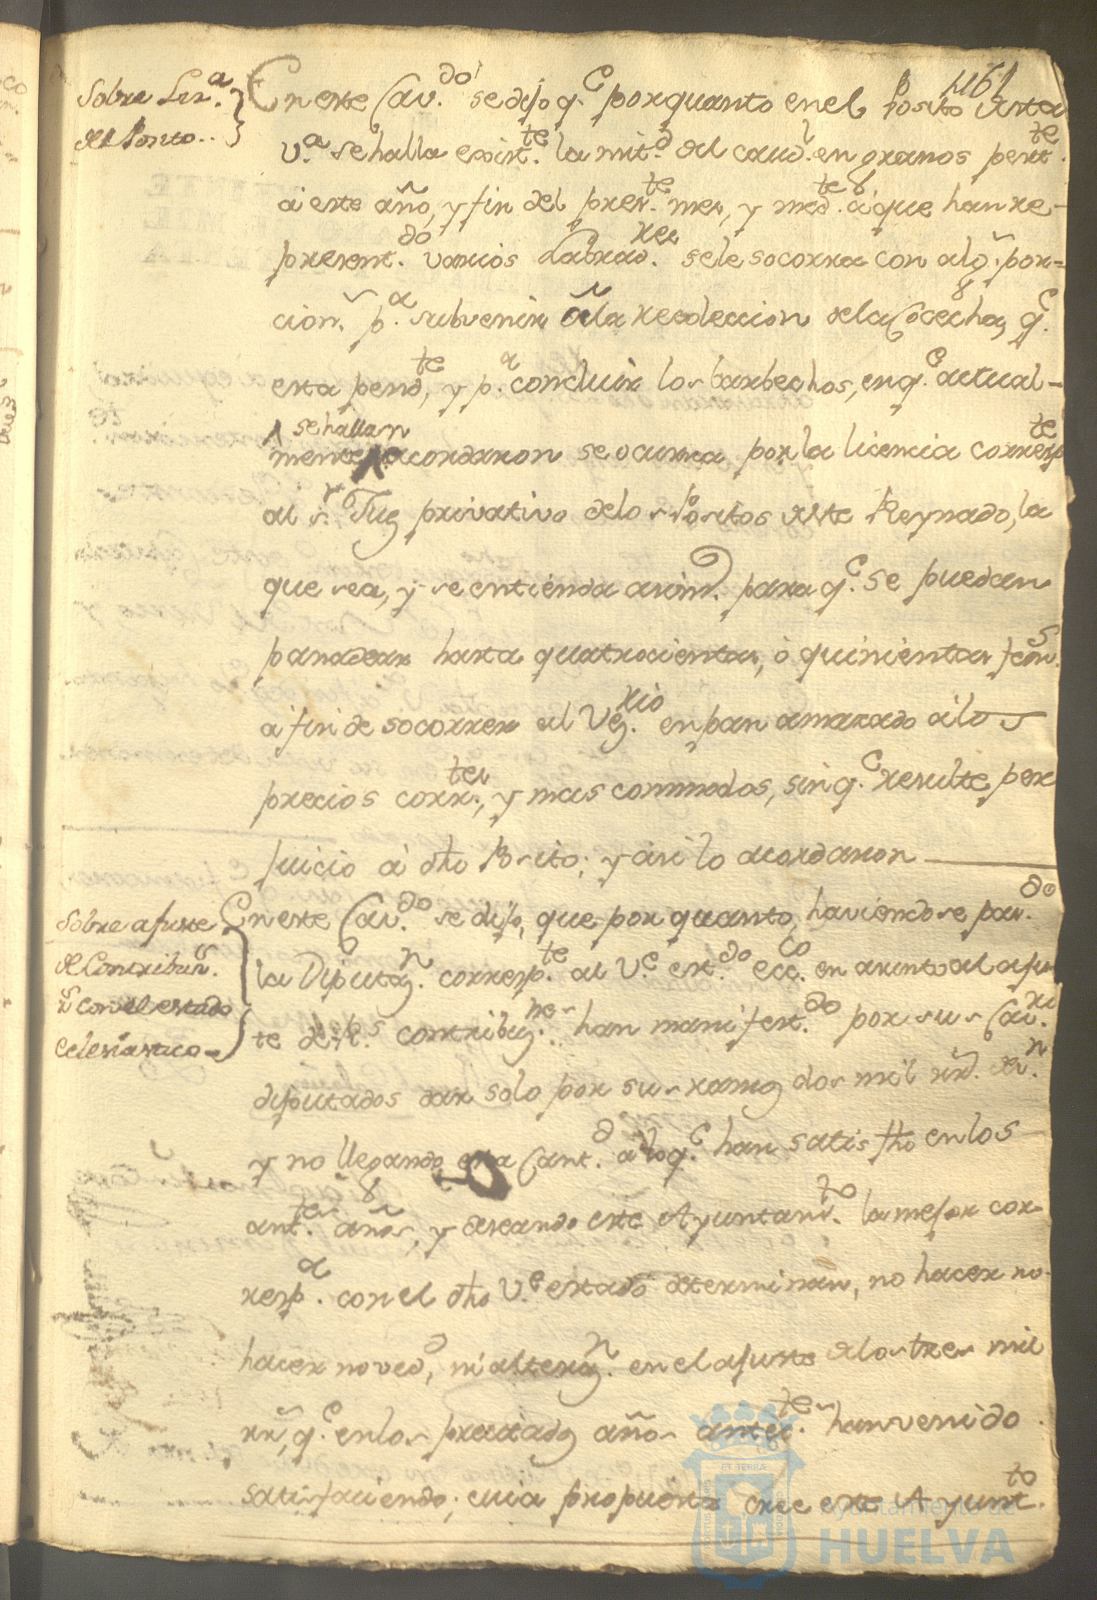 461
Sobre Liz.ª
del Posito..
En este Cav.do se dijo q.e por quanto en el Posito de esta
V.ª se halla exist.te la mit.d del caud.l en granos pert.te
á este año, y fin del pres.te mes, y med.te á que han re-
present.do varios Labrad.res se le socorra con alg.ª por-
cion p.ª subvenir á la recoleccion de la Cosecha, q.e
esta pend.te, y p.ª concluir los barbechos, en q.e actual-
mente se hallan acordaron se ocurra por la licencia corresp.te
al s.r Juez privativo de los Positos de este Reynado, la
que sea, y se entienda asim.o para q.e se puedan
panadear hasta quatrocientas, ó quinientas fan.s
a fin de socorrer al Veg.rio en pan amasado á los
precios corr.tes, y mas commodos, sin q.e resulte per
juicio á dho Posito; y asi lo acordaron
Sobre ajuste
de Contribuz.s
r.s con el estado
eclesiastico
En este Cav.do se dijo, que por quanto, haviendose pas.do
la Diputaz.n corresp.te al V.e est.do ecc.co en asunto al ajus
te de r.s contribuz.nes han manifest.do por sus Cav.ros
diputados dar solo por sus ramos dos mil rr.s de v.n
y no llegando esta Cant.d a lo q.e han satisfho en los
ant.res años, y deseando este Ayuntam.to la mejor cor-
resp.ª con el dho V.e estado determinan, no hacer no-
hacer noved.d, ni alteraz.n en el ajuste de los tres mil
rr.s, q.e en los preciados años antec.tes han venido
satisfaciendo; cuia propuesta cree este Ayunt.to
Ayuntamiento de
HUELVA